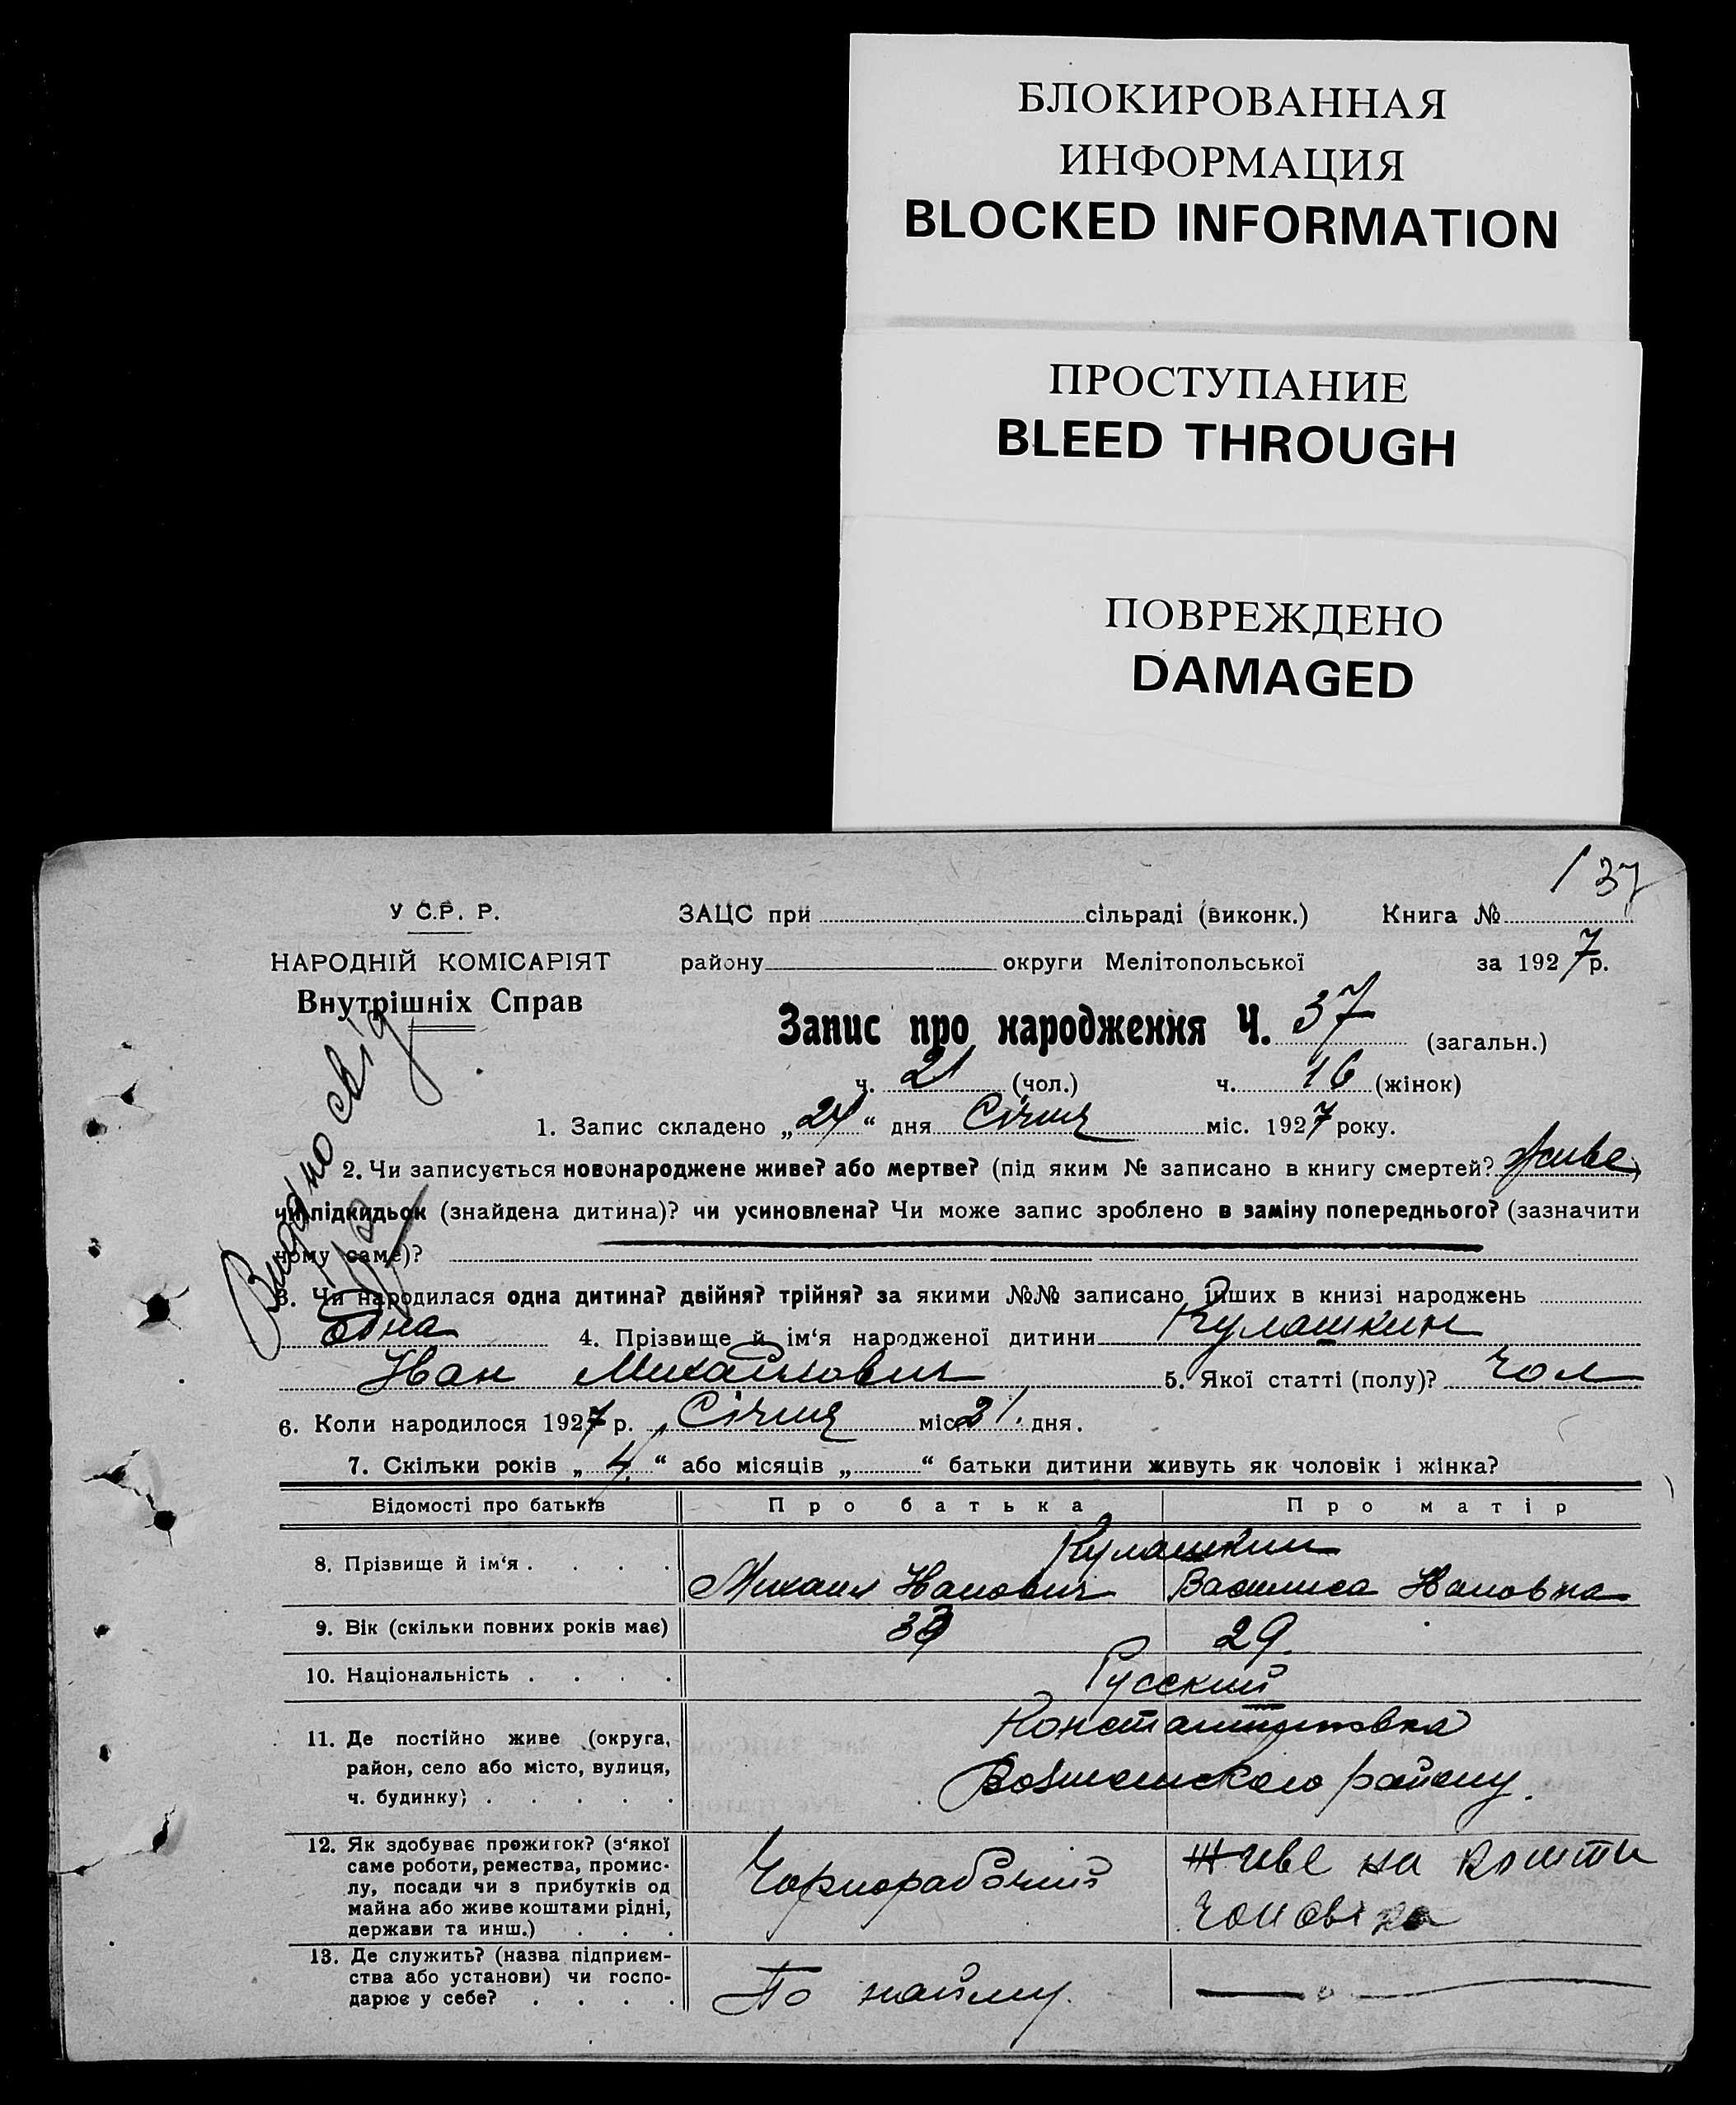 БЛОКИРОВАННАЯ
ИНФОРМАЦИЯ
BLOCKED INFORMATION
ПРОСТУПАНИЕ
BLEED THROUGH
ПОВРЕЖДЕНО
DAMAGED
137
У С.Р. Р.
ЗАЦС при сільраді (виконк.) Книга №
НАРОДНІЙ КОМІСАРІЯТ
району округи Мелітопольської за 1927 р.
Внутрішніх Справ
Запис про народження Ч. 37 (загальн.)
ч. 21 (чол.) ч. 16 (жінок)
Видано
1. Запис складено „24“ дня Січня міс. 1927 року.
2. Чи записується новонароджене живе? або мертве? (під яким № записано в книгу смертей? живе)
чи підкидьок (знайдена дитина)? чи усиновлена? Чи може запис зроблено в заміну попереднього? (зазначити
чому саме)?
3. Чи народилася одна дитина? двійня? трійня? за якими №№ записано інших в книзі народжень
Одна 4. Прізвище й ім‘я народженої дитини Кулашкин
Иван Михайлович 5. Якої статті (полу)? чол
6. Коли народилося 1927 р. Січня міс. 21. дня.
7. Скільки років „4“ або місяців „“ батьки дитини живуть як чоловік і жінка?
Відомості про батьків Про батька Про матір
8. Прізвище й ім‘я . . . . Кулашкин
Михаил Иванович Василиса Ивановна
9. Вік (скільки повних років має) 33 29.
10. Національність . . . . Русский
11. Де постійно живе (округа,
район, село або місто, вулиця,
ч. будинку) . . . . .
Константиновка
району.
12. Як здобуває прожиток? (з‘якої
саме роботи, ремества, промис-
лу, посади чи з прибутків од
майна або живе коштами рідні,
держави та инш.) . . .
Чорнорабочий
Живе на кошти
чоловіка
13. Де служить? (назва підприєм-
ства або установи) чи госпо-
дарює у себе? . . . .
По найму.